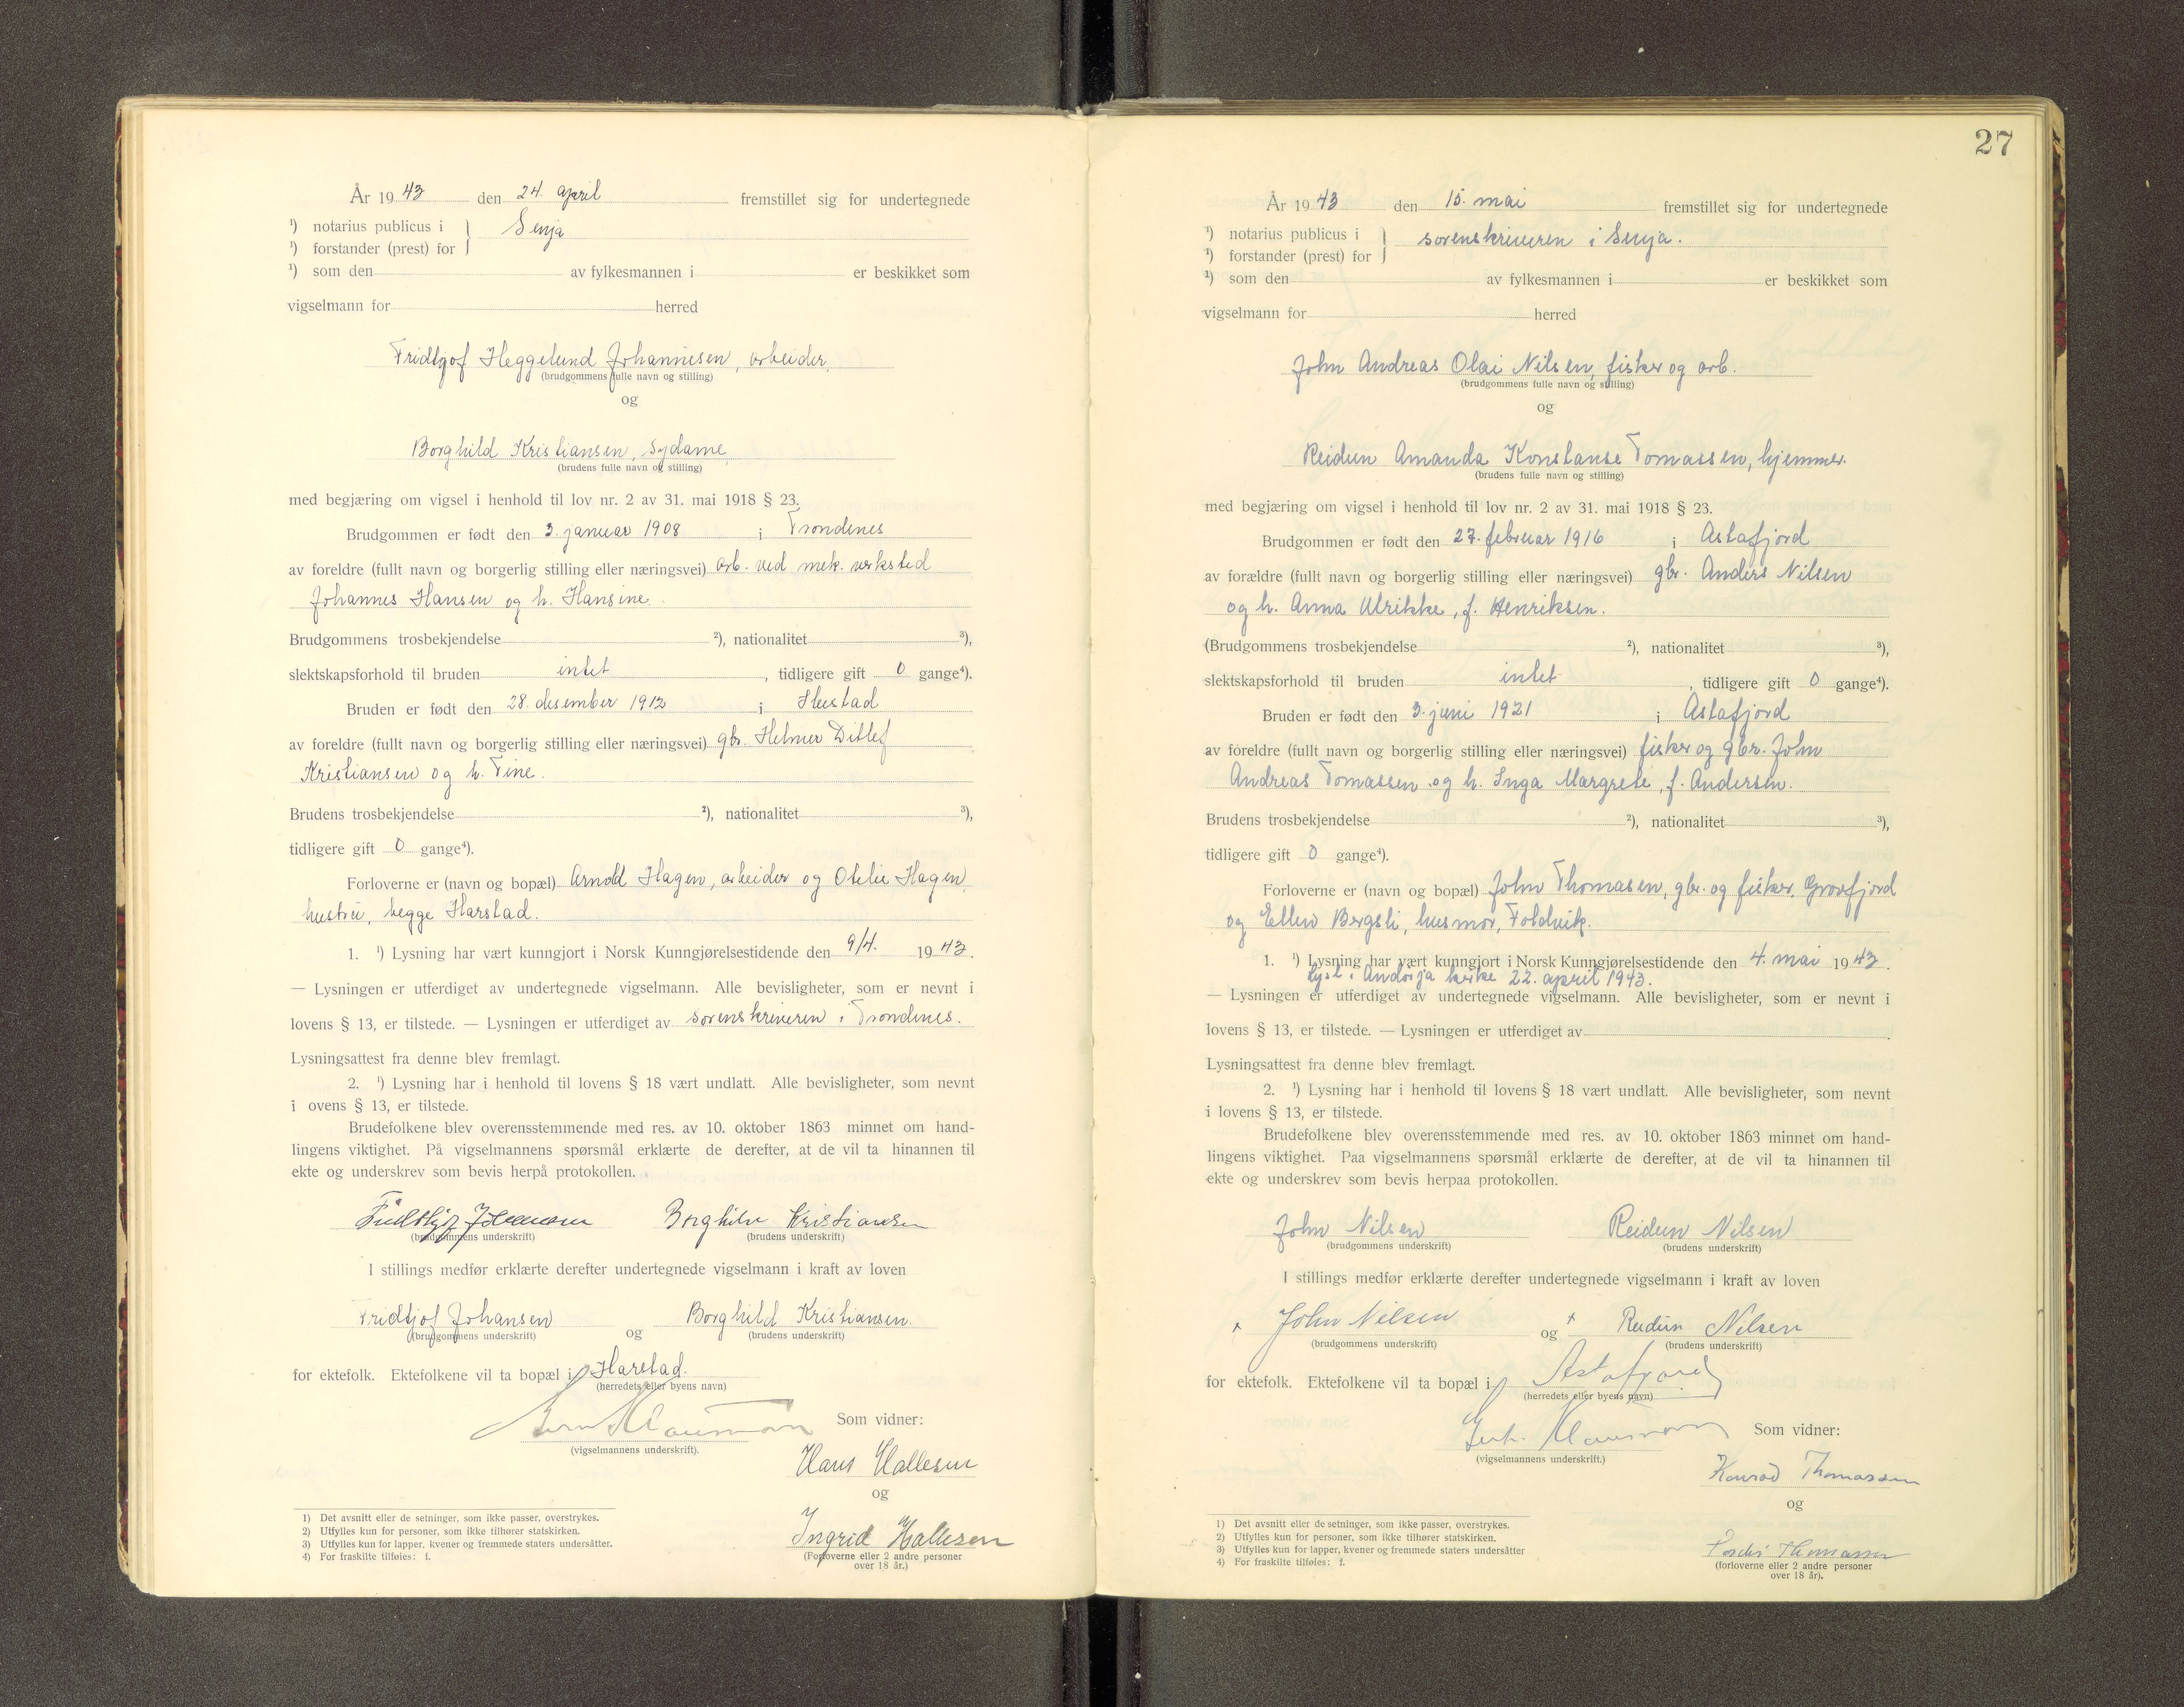 År 1943 den 24. april fremstillet sig for undertegnede
¹) notarius publicus i } Senja
¹) forstander (prest) for
¹) som den av fylkesmannen i er beskikket som
vigselmann for herred
Fridtgof Heggelund Johannesen, arbeider,
(brudgommens fulle navn og stilling)
og
Borghild Kristiansen, sydame
(brudens fulle navn og stilling)
med begjæring om vigsel i henhold til lov nr. 2 av 31. mai 1918 § 23.
Brudgommen er født den 3. januar 1908 i Trondenes
av foreldre (fullt navn og borgerlig stilling eller næringsvei) arb. ved mek. verksted
Johannes Hansen og h. Hansine.
Brudgommens trosbekjendelse ²), nationalitet ³),
slektskapsforhold til bruden intet, tidligere gift 0 gange⁴).
Bruden er født den 28. desember 1912 i Hustad
av foreldre (fullt navn og borgerlig stilling eller næringsvei) gbr. Helmer Ditlef
Kristiansen og h. Tine.
Brudens trosbekjendelse ²), nationalitet ³),
tidligere gift 0 gange⁴).
Forloverne er (navn og bopæl) Arnold Hagen, arbeider og Otelie Hagen,
hustru, begge Harstad.
1. ¹) Lysning har vært kunngjort i Norsk Kunngjørelsestidende den 9/4. 1943.
— Lysningen er utferdiget av undertegnede vigselmann. Alle bevisligheter, som er nevnt i
lovens § 13, er tilstede. — Lysningen er utferdiget av sorenskriveren i Trondenes.
Lysningsattest fra denne blev fremlagt.
2. ¹) Lysning har i henhold til lovens § 18 vært undlatt. Alle bevisligheter, som nevnt
i ovens § 13, er tilstede.
Brudefolkene blev overensstemmende med res. av 10. oktober 1863 minnet om hand-
lingens viktighet. På vigselmannens spørsmål erklærte de derefter, at de vil ta hinannen til
ekte og underskrev som bevis herpå protokollen.
Fridthjof Johansen Borghild Kristiansen
(brudgommens underskrift) (brudens underskrift)
I stillings medfør erklærte derefter undertegnede vigselmann i kraft av loven
Fridtjof Johansen og Borghild Kristiansen.
(brudgommens underskrift) (brudens underskrift)
for ektefolk. Ektefolkene vil ta bopæl i Harstad.
(herredets eller byens navn)
(vigselmannens underskrift).
Som vidner:
Hans Hallesen
og
Ingrid Hallesen
(Forloverne eller 2 andre personer
over 18 år.)
1) Det avsnitt eller de setninger, som ikke passer, overstrykes.
2) Utfylles kun for personer, som ikke tilhører statskirken.
3) Utfylles kun for lapper, kvener og fremmede staters undersåtter.
4) For fraskilte tilføies: f.
27
År 1943 den 15. mai fremstillet sig for undertegnede
¹) notarius publicus i } sorenskriveren i Senja.
¹) forstander (prest) for
¹) som den av fylkesmannen i er beskikket som
vigselmann for herred
John Andreas Olai Nilsen, fisker og arb.
(brudgommens fulle navn og stilling)
og
Reidun Amanda Konstanse Tomassen, hjemmev.
(brudens fulle navn og stilling)
med begjæring om vigsel i henhold til lov nr. 2 av 31. mai 1918 § 23.
Brudgommen er født den 27. februar 1916 i Astafjord
av forældre (fullt navn og borgerlig stilling eller næringsvei) gbr. Anders Nilsen
og h. Anna Ulrikke, f. Henriksen.
(Brudgommens trosbekjendelse ²), nationalitet ³),
slektskapsforhold til bruden intet, tidligere gift 0 gange⁴).
Bruden er født den 3. juni 1921 i Astafjord
av foreldre (fullt navn og borgerlig stilling eller næringsvei) fisker og gbr. John
Andreas Tomassen og h. Inga Margrete, f. Andersen.
Brudens trosbekjendelse ²), nationalitet ³),
tidligere gift 0 gange⁴).
Forloverne er (navn og bopæl) John Thomasen, gbr. og fisker, Grovfjord
og Ellen Bergsli, husmor, Foldvik.
1. ¹) Lysning har vært kunngjort i Norsk Kunngjørelsestidende den 4. mai 1943.
Lyst i Andørja kirke 22. april 1943.
— Lysningen er utferdiget av undertegnede vigselmann. Alle bevisligheter, som er nevnt i
lovens § 13, er tilstede. — Lysningen er utferdiget av
Lysningsattest fra denne blev fremlagt.
2. ¹) Lysning har i henhold til lovens § 18 vært undlatt. Alle bevisligheter, som nevnt
i lovens § 13, er tilstede.
Brudefolkene blev overensstemmende med res. av 10. oktober 1863 minnet om hand-
lingens viktighet. Paa vigselmannens spørsmål erklærte de derefter, at de vil ta hinannen til
ekte og underskrev som bevis herpaa protokollen.
John Nilsen Reidun Nilsen
(brudgommens underskrift) (brudens underskrift)
I stillings medfør erklærte derefter undertegnede vigselmann i kraft av loven
x John Nilsen og x Reidun Nilsen
(brudgommens underskrift) (brudens underskrift)
for ektefolk. Ektefolkene vil ta bopæl i Astafjord
(herredets eller byens navn)
(vigselmannens underskrift.)
Som vidner:
Konrad Thomassen
og
Thomassen
(forloverne eller 2 andre personer
over 18 år).
1) Det avsnitt eller de setninger, som ikke passer, overstrykes.
2) Utfylles kun for personer, som ikke tilhører statskirken.
3) Utfylles kun for lapper, kvener og fremmede staters undersåtter
4) For fraskilte tilføies: f.